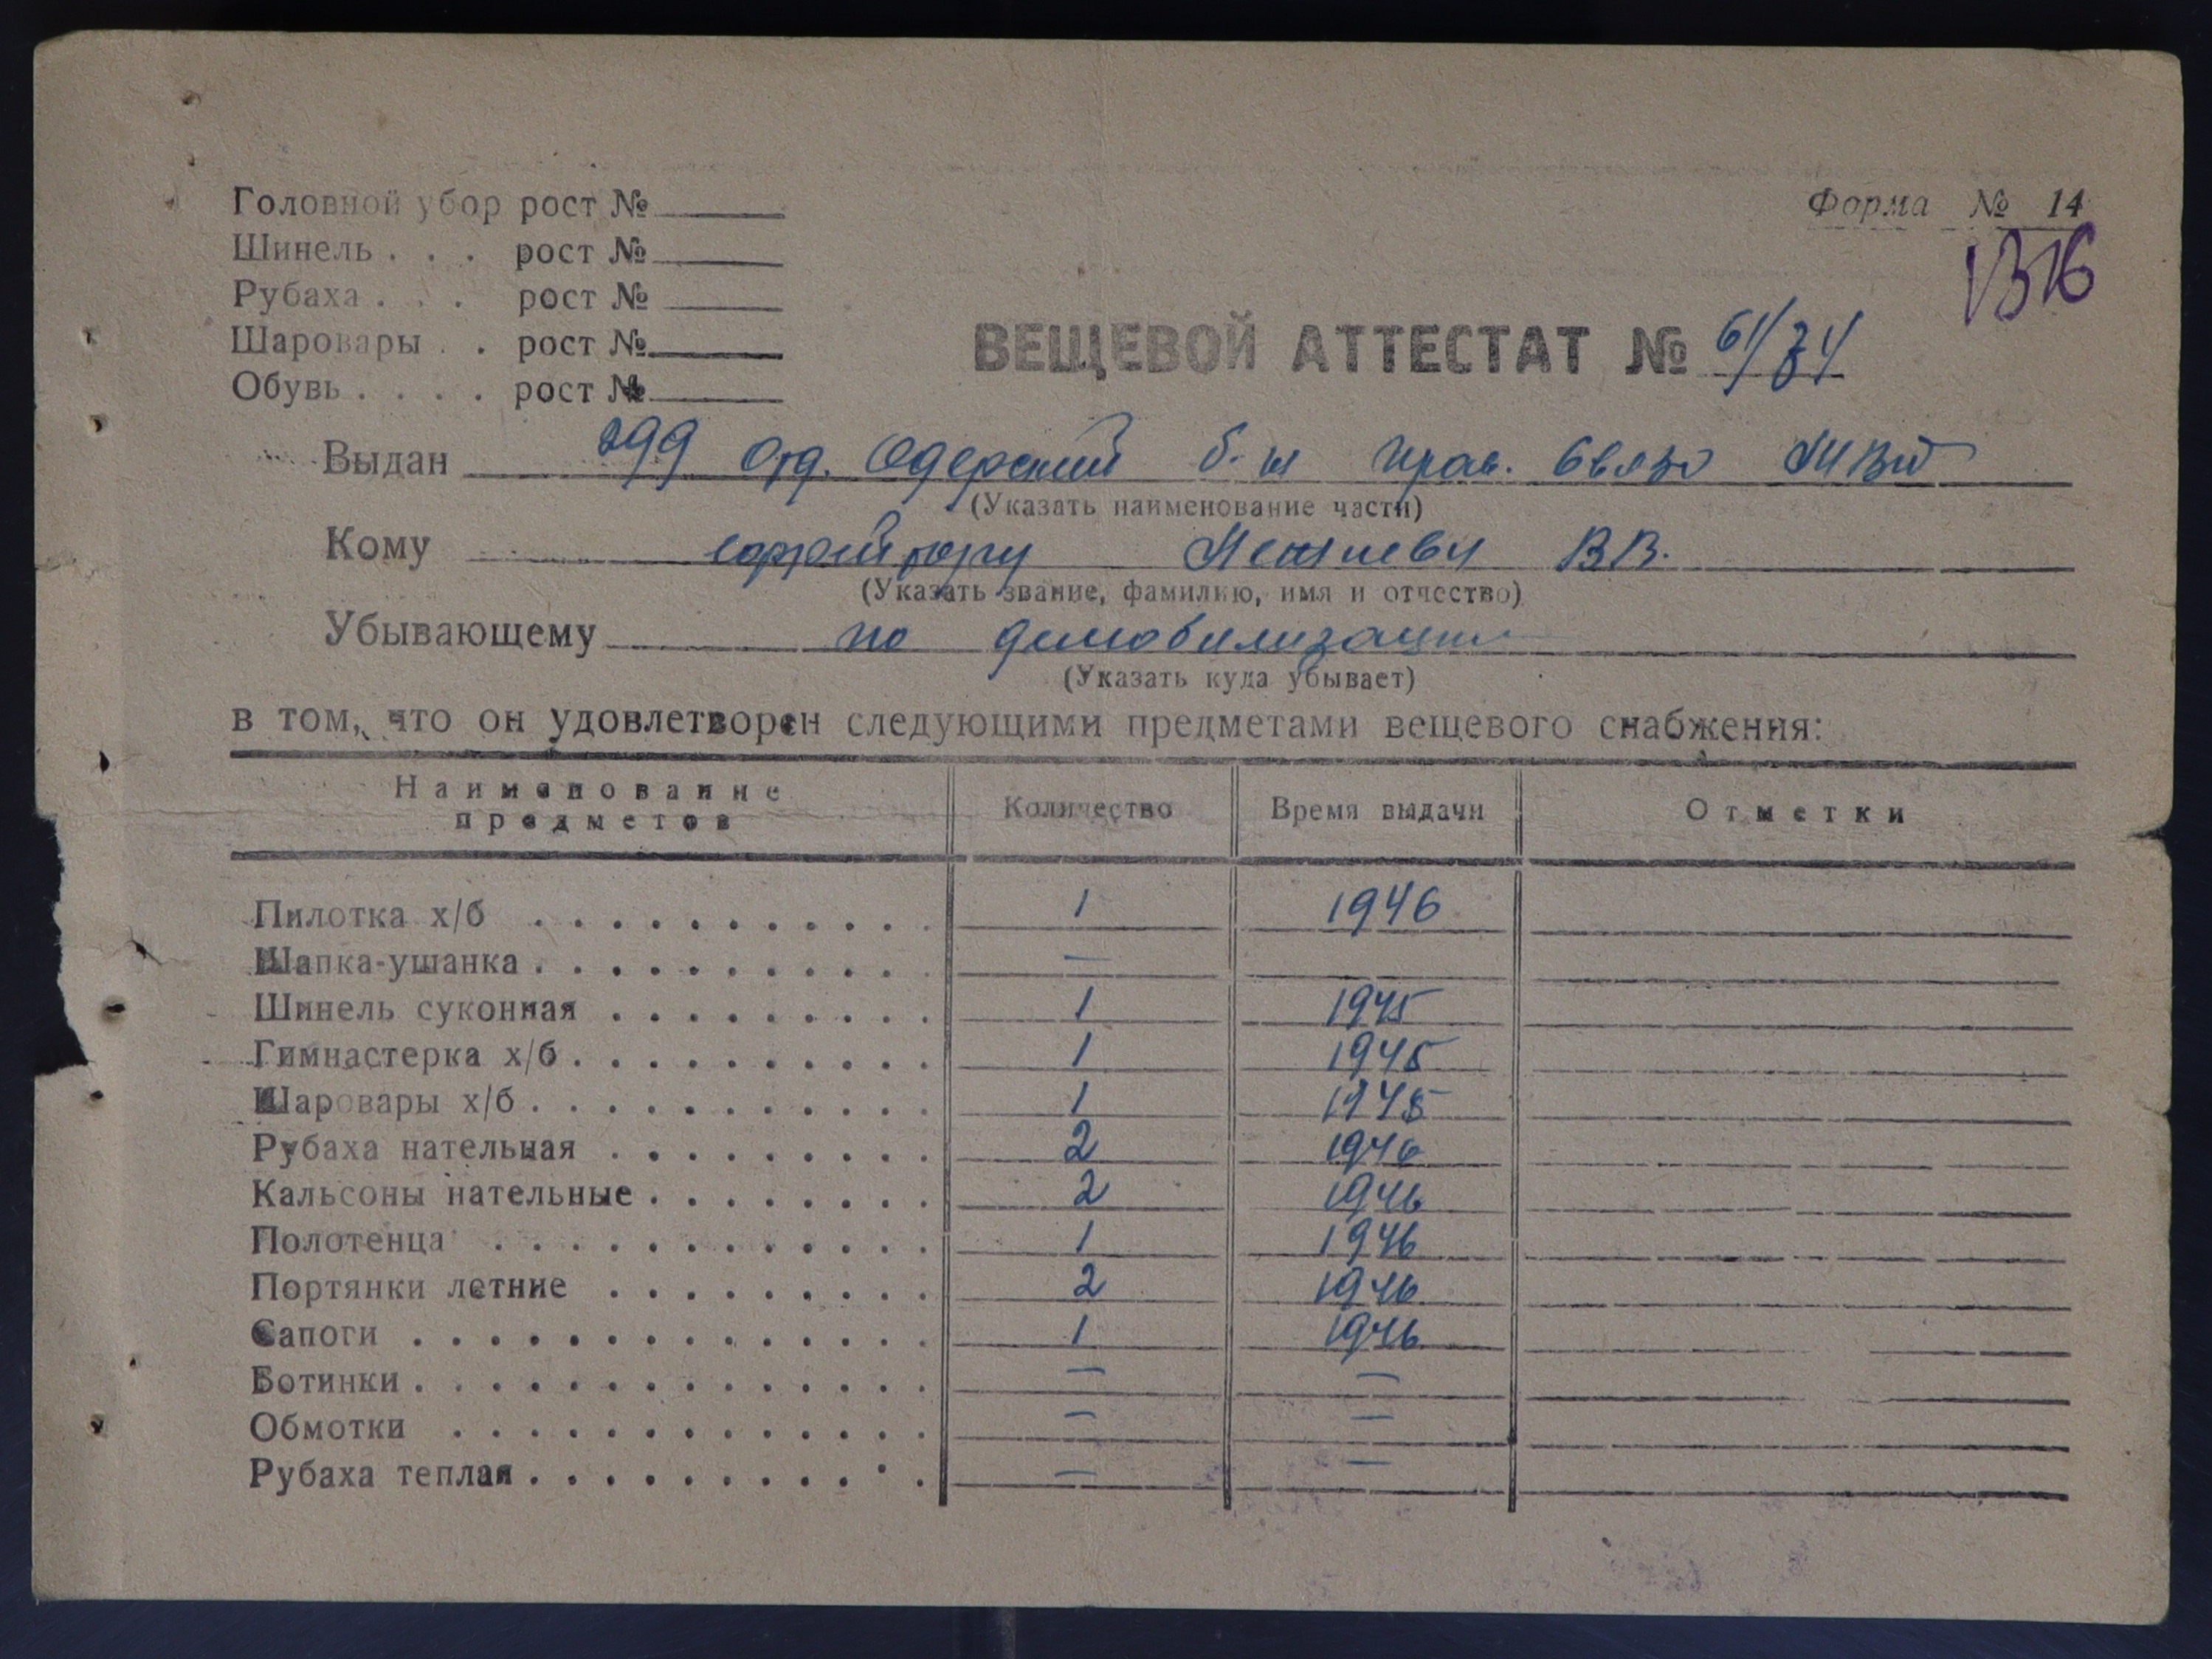 Головной убор рост №
Шинель . . . рост №
Рубаха . . . рост №
Шаровары . . рост №
Обувь . . . . рост №
Форма № 14
ВЕЩЕВОЙ АТТЕСТАТ №
Выдан 299 Отд. Одерский б-н Прав. Связи МВД
(Указать наименование части)
Кому ефрейтору В.В.
(Указать звание, фамилию, имя и отчество)
Убывающему по демобилизации
(Указать куда убывает)
в том, что он удовлетворен следующими предметами вещевого снабжения:
Наименование предметов Количество Время выдачи Отметки
Пилотка х/б 1 1946
Шапка-ушанка —
Шинель суконная 1 1945
Гимнастерка х/б 1 1945
Шаровары х/б 1 1945
Рубаха нательная 2 1946
Кальсоны нательные 2 1946
Полотенца 1 1946
Портянки летние 2 1946
Сапоги 1 1946
Ботинки — —
Обмотки — —
Рубаха теплая — —